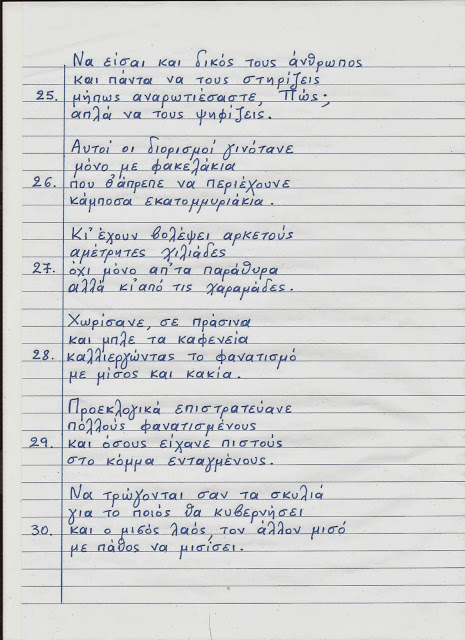 Να είσαι και δικός τους άνθρωπος
και πάντα να τους στηρίζεις
25. μήπως αναρωτιέσαστε, Πώς;
απλά να τους ψηφίζεις.
Αυτοί οι διορισμοί γινότανε
μόνο με φακελάκια
26. που θ'άπρεπε να περιέχουνε
κάμποσα εκατομμυριάκια.
Κι'έχουν βολέψει αρκετούς
αμέτρητες χιλιάδες
27. όχι μόνο απ'τα παράθυρα
αλλά κι'από τις χαραμάδες.
Χωρίσανε, σε πράσινα
και μπλε τα καφενεία
28. καλλιεργώντας το φανατισμό
με μίσος και κακία.
Προεκλογικά επιστρατεύανε
πολλούς φανατισμένους
29. και όσους είχανε πιστούς
στο κόμμα ενταγμένους.
Να τρώγονται σαν τα σκυλιά
για το ποιός θα κυβερνήσει
30. και ο μισός λαός, τον άλλον μισό
με πάθος να μισίσει.